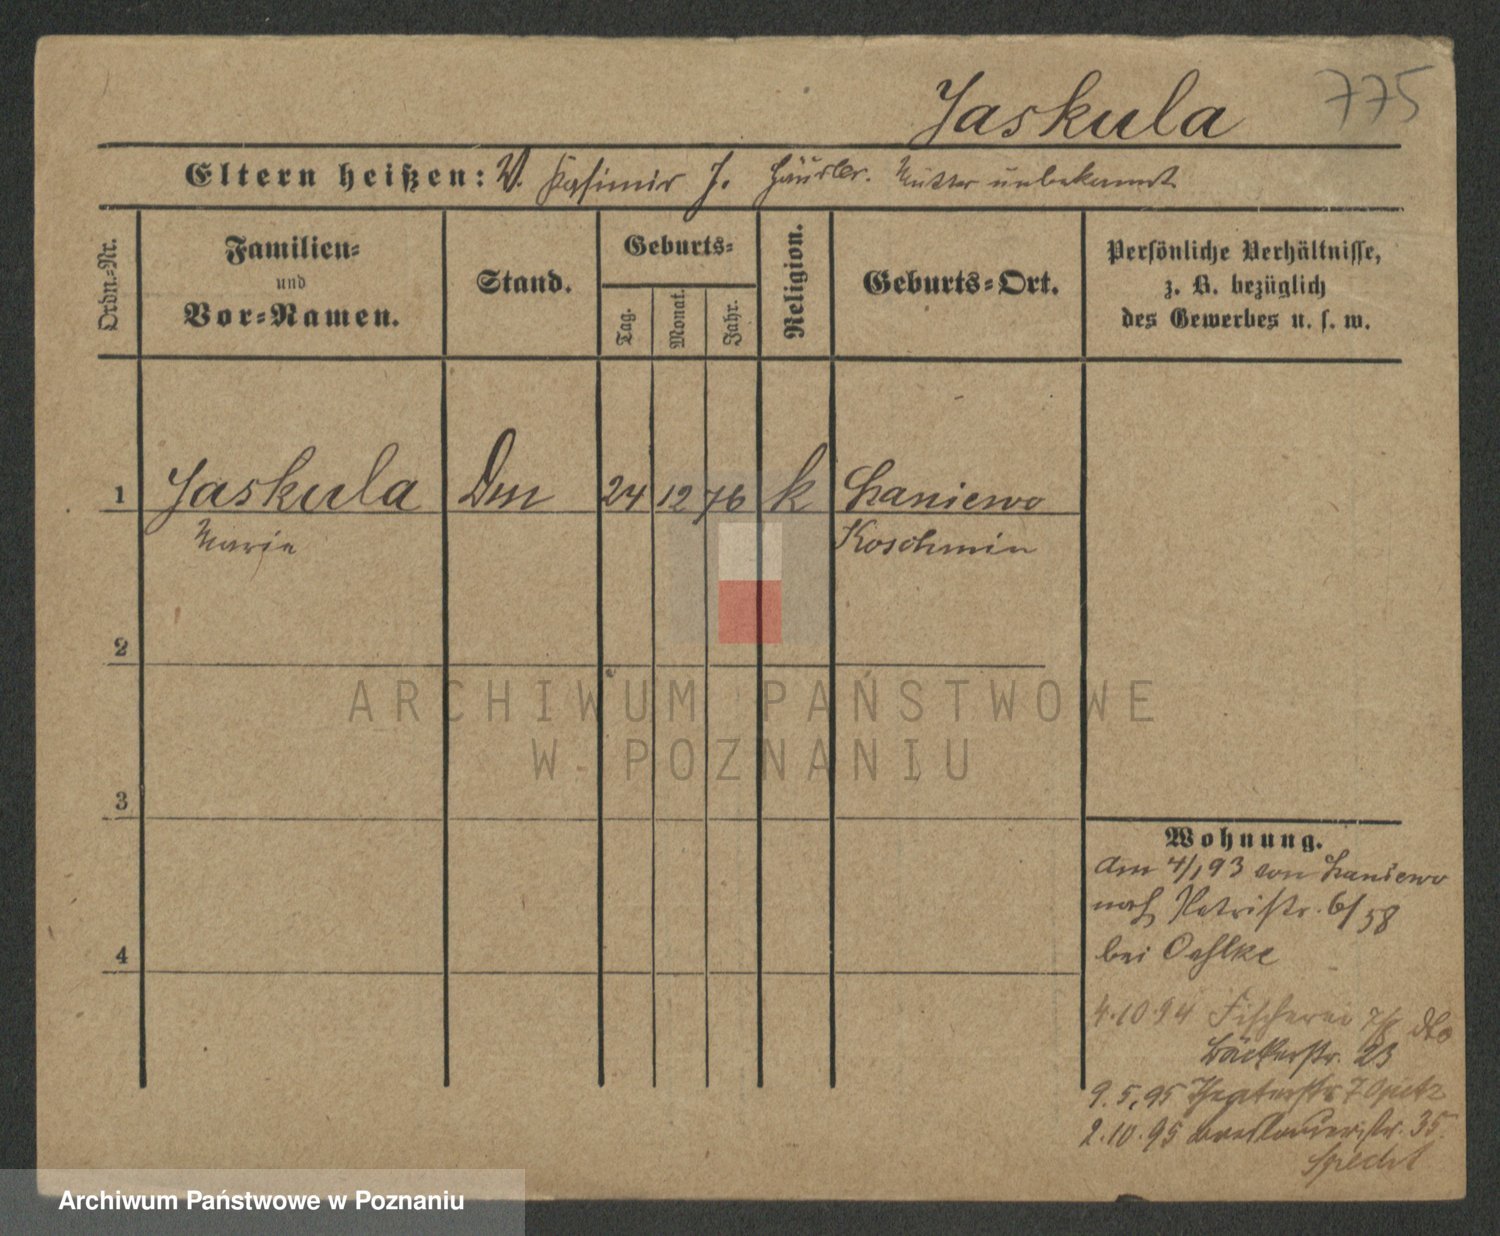 Jaskula 775
Eltern heißen: V. Kasimir J. Häusler. Mutter unbekannt
Ordn.-Nr.
Familien-
und
Vor-Namen.
Stand.
Geburts-
Tag.
Monat.
Jahr.
Religion.
Geburts-Ort.
Persönliche Verhältnisse,
z. B. bezüglich
des Gewerbes u. s. w.
1 Jaskula Dm 24 12 76 k Laniewo
Marie Koschmin
2
3
4
Wohnung.
Am 4/1 93 von Laniewo
nach Petristr. 6/58
bei Oehlke
4.10.94 Fischerei 7/8 dto
Bäckerstr. 23
9.5.95 Theaterstr 7 Opitz
2.10.95 Breslauerstr. 35.
Specht
ARCHIWUM PAŃSTWOWE
W POZNANIU
Archiwum Państwowe w Poznaniu